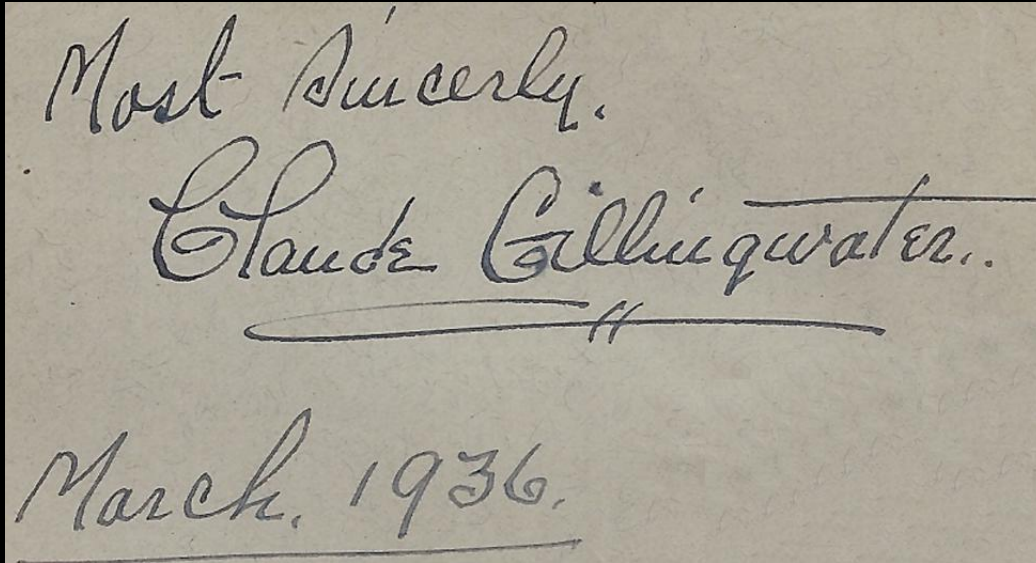 Most Sincerly.
Claude Gillingwater..
March. 1936.